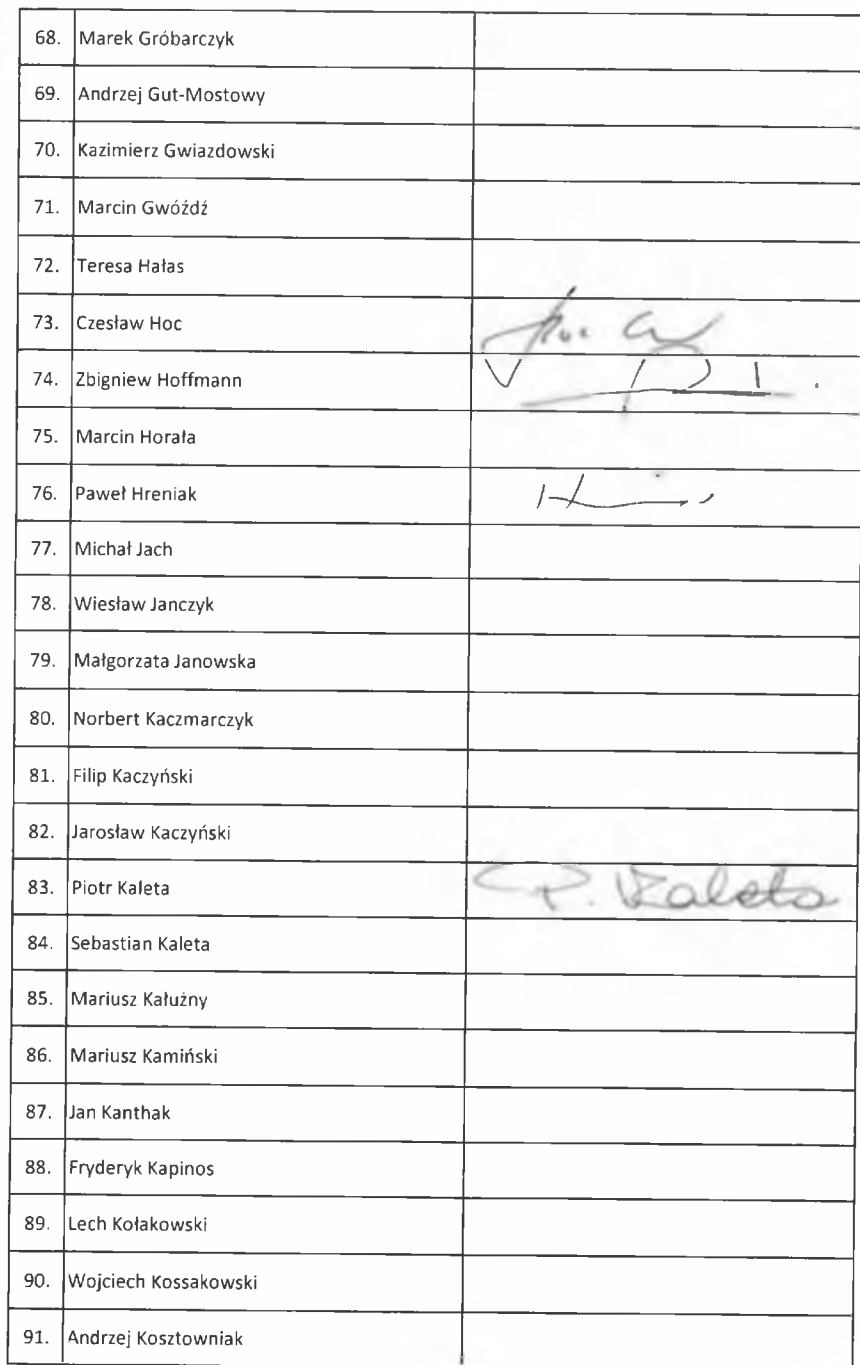 68. Marek Gróbarczyk
69. Andrzej Gut-Mostowy
70. Kazimierz Gwiazdowski
71. Marcin Gwóźdź
72. Teresa Hałas
73. Czesław Hoc
74. Zbigniew Hoffmann
75. Marcin Horała
76. Paweł Hreniak
77. Michał Jach
78. Wiesław Janczyk
79. Małgorzata Janowska
80. Norbert Kaczmarczyk
81. Filip Kaczyński
82. Jarosław Kaczyński
83. Piotr Kaleta P. Kaleta
84. Sebastian Kaleta
85. Mariusz Kałużny
86. Mariusz Kamiński
87. Jan Kanthak
88. Fryderyk Kapinos
89. Lech Kołakowski
90. Wojciech Kossakowski
91. Andrzej Kosztowniak